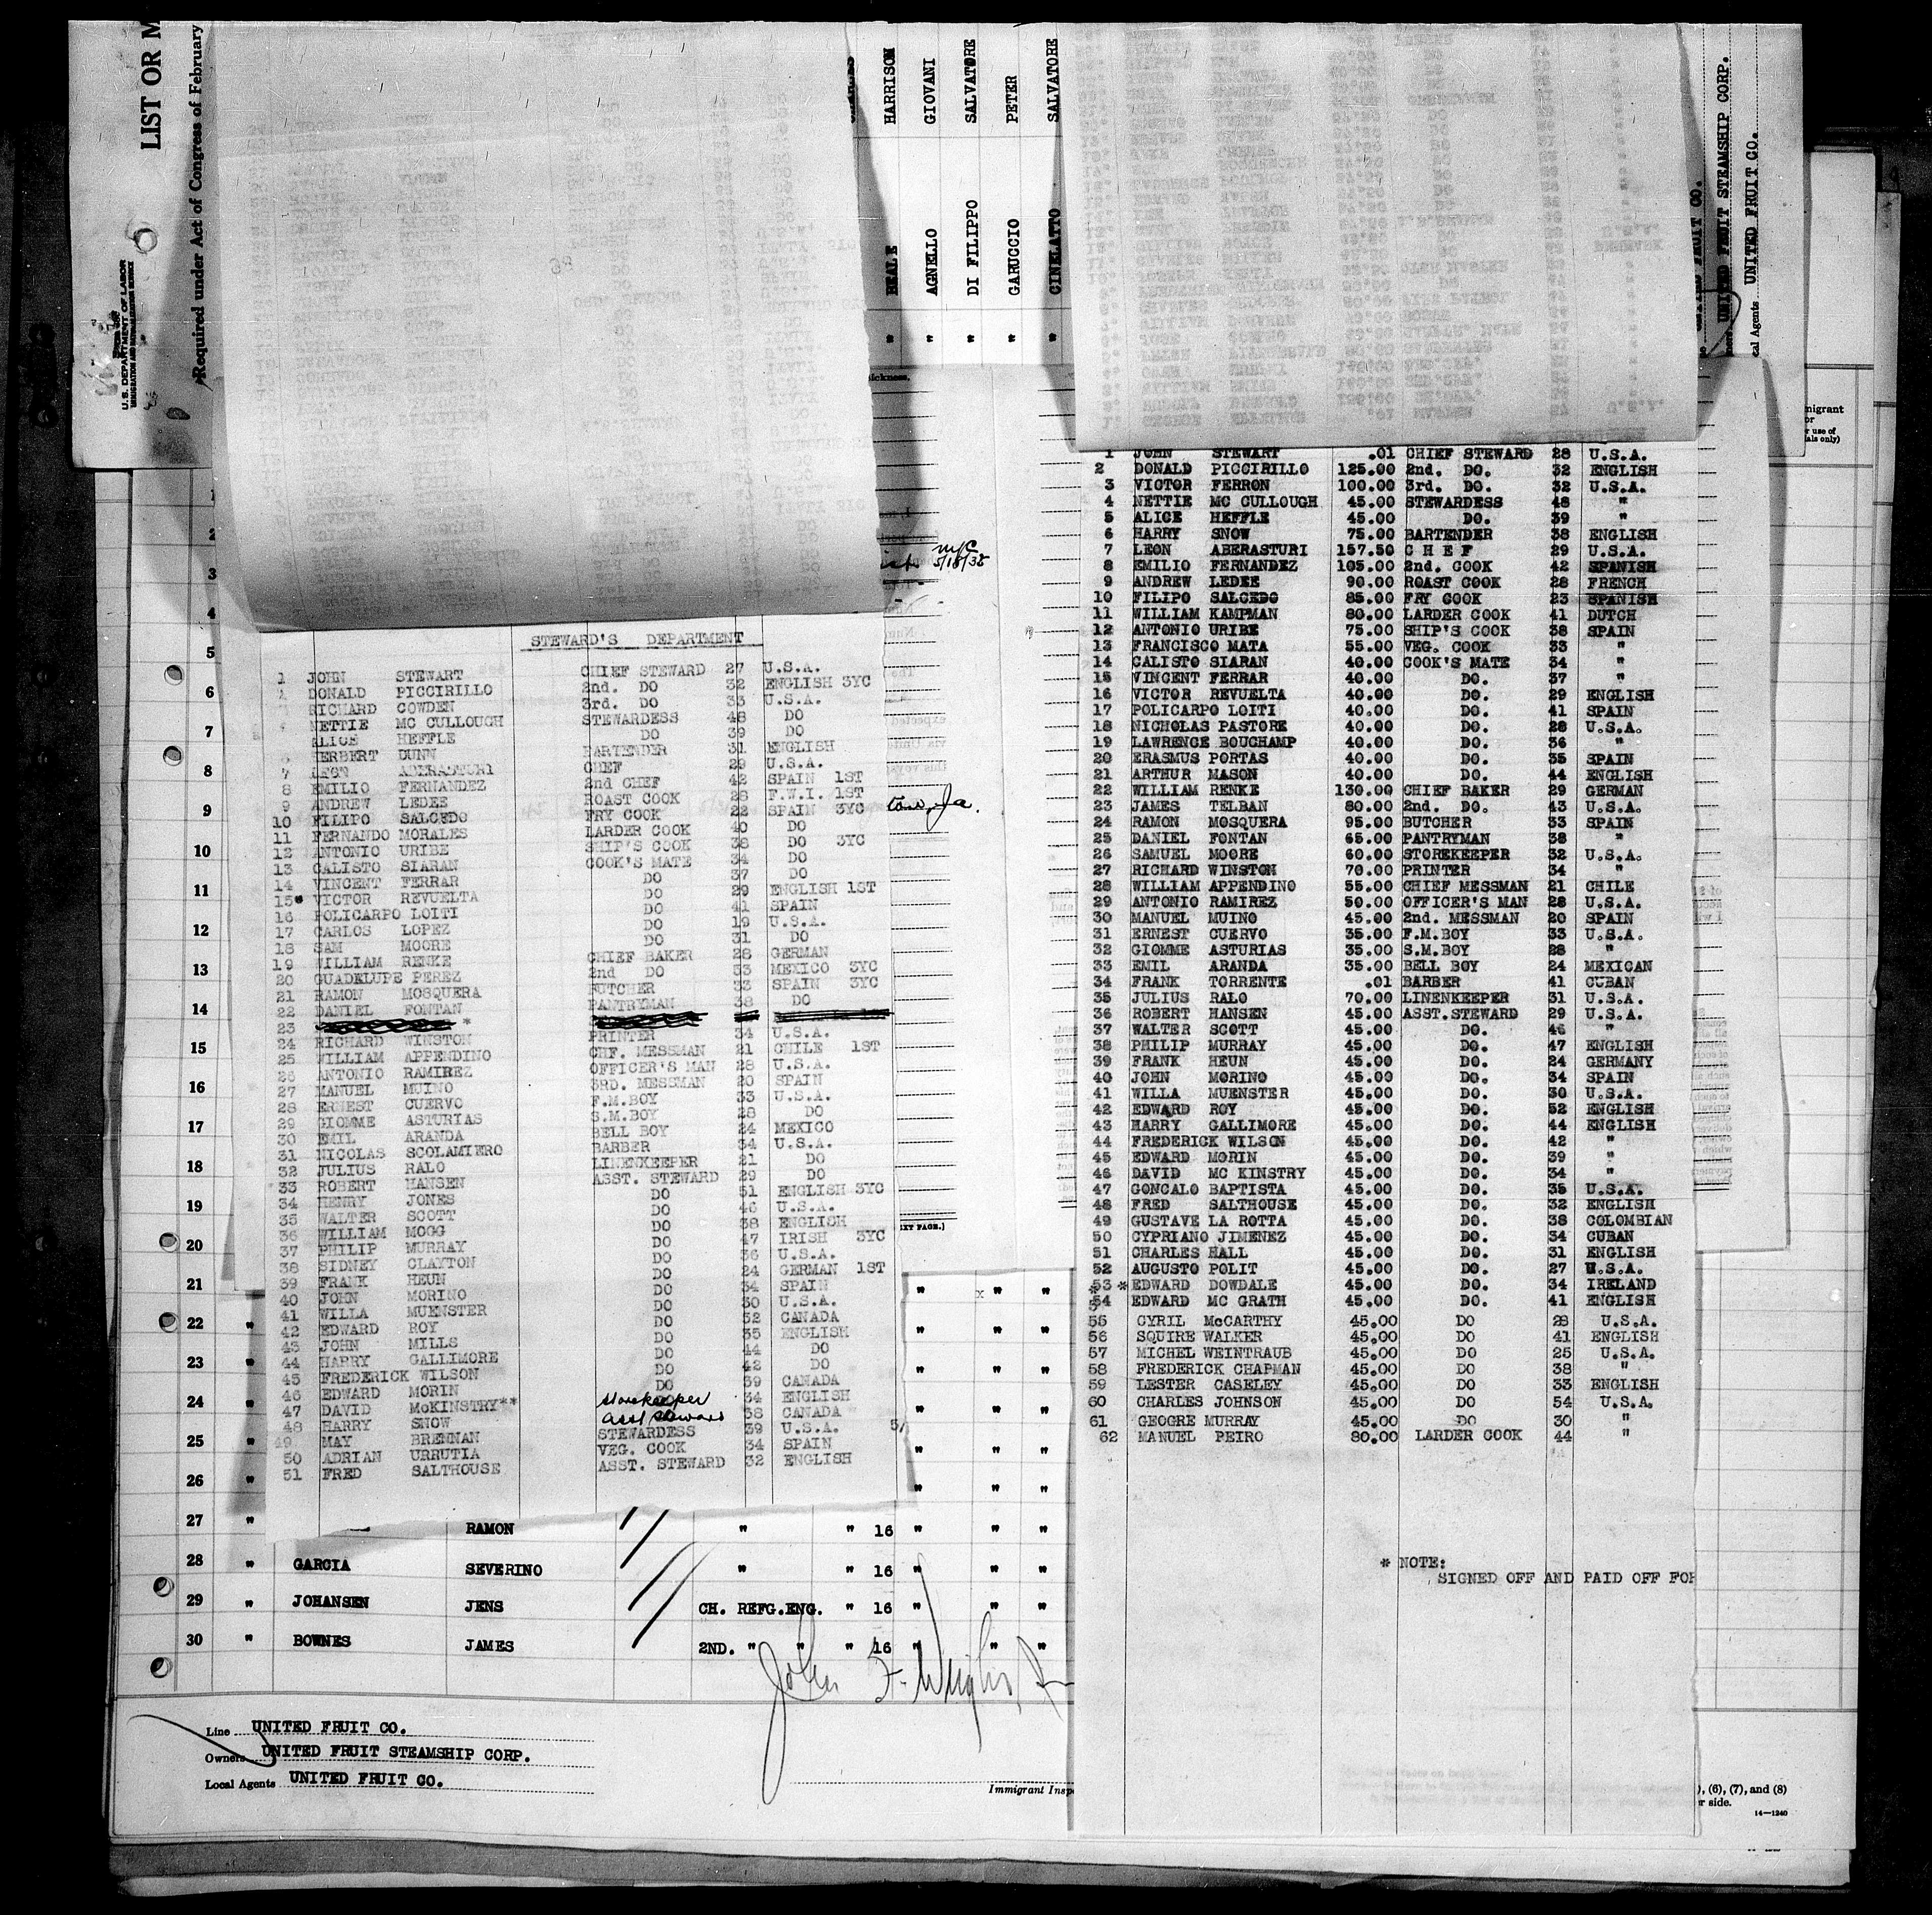 LIST OR M
Required under Act of Congress of February
U.S. DEPARTMENT OF LABOR
HARRISON
GIOVANI
SALVATORE
PETER
SALVATORE
BEALE
AGNELLO
DI FILIPPO
GARUCCIO
CINELATTO
UNITED FRUIT STEAMSHIP CORP.
cal Agents UNITED FRUIT CO.
STEWARD'S DEPARTMENT
1 JOHN STEWART CHIEF STEWARD 27 U.S.A.
DONALD PICCIRILLO 2nd. DO 32 ENGLISH 3YC
RICHARD COWDEN 3rd. DO 33 U.S.A.
NETTIE MC CULLOUGH STEWARDESS 48 DO
ALICE HEFFLE DO 39 DO
HERBERT DUNN BARTENDER 31 ENGLISH
7 LEON ABERASTURI CHEF 29 U.S.A.
8 EMILIO FERNANDEZ 2nd CHEF 42 SPAIN 1ST
9 ANDREW LEDEE ROAST COOK 28 F.W.I. 1ST
10 FILIPO SALCEDO FRY COOK 22 SPAIN 3YC
11 FERNANDO MORALES LARDER COOK 40 DO
12 ANTONIO URIBE SHIP'S COOK 38 DO 3YC
13 CALISTO SIARAN COOK'S MATE 34 DO
14 VINCENT FERRAR DO 37 DO
15* VICTOR REVUELTA DO 29 ENGLISH 1ST
16 POLICARPO LOITI DO 41 SPAIN
17 CARLOS LOPEZ DO 19 U.S.A.
18 SAM MOORE DO 31 DO
19 WILLIAM RENKE CHIEF BAKER 28 GERMAN
20 GUADELUPE PEREZ 2nd DO 53 MEXICO 3YC
21 RAMON MOSQUERA BUTCHER 33 SPAIN 3YC
22 DANIEL FONTAN PANTRYMAN 38 DO
23 *
24 RICHARD WINSTON PRINTER 34 U.S.A.
25 WILLIAM APPENDINO CHF. MESSMAN 21 CHILE 1ST
26 ANTONIO RAMIREZ OFFICER'S MAN 28 U.S.A.
27 MANUEL MUINO 3RD. MESSMAN 20 SPAIN
28 ERNEST CUERVO F.M.BOY 33 U.S.A.
29 GIOMME ASTURIAS S.M.BOY 28 DO
30 EMIL ARANDA BELL BOY 24 MEXICO
31 NICOLAS SCOLAMIERO BARBER 34 U.S.A.
32 JULIUS RALO LINENKEEPER 21 DO
33 ROBERT HANSEN ASST. STEWARD 29 DO
34 HENRY JONES DO 51 ENGLISH 3YC
35 WALTER SCOTT DO 46 U.S.A.
36 WILLIAM MOGG DO 38 ENGLISH
37 PHILIP MURRAY DO 47 IRISH 3YC
38 SIDNEY CLAYTON DO 36 U.S.A.
39 FRANK HEUN DO 24 GERMAN 1ST
40 JOHN MORINO DO 34 SPAIN
41 WILLA MUENSTER DO 30 U.S.A.
42 EDWARD ROY DO 52 CANADA
43 JOHN MILLS DO 35 ENGLISH
44 HARRY GALLIMORE DO 44 DO
45 FREDERICK WILSON DO 42 DO
46 EDWARD MORIN DO 39 CANADA
47 DAVID McKINSTRY** Storekeeper 34 ENGLISH
48 HARRY SNOW asst steward 38 CANADA
49 MAY BRENNAN STEWARDESS 39 U.S.A.
50 ADRIAN URRUTIA VEG. COOK 34 SPAIN
51 FRED SALTHOUSE ASST. STEWARD 32 ENGLISH
1 JOHN STEWART .01 CHIEF STEWARD 28 U.S.A.
2 DONALD PICCIRILLO 125.00 2nd. DO. 32 ENGLISH
3 VICTOR FERRON 100.00 3rd. DO. 32 U.S.A.
4 NETTIE MC CULLOUGH 45.00 STEWARDESS 48 "
5 ALICE HEFFLE 45.00 DO. 39 "
6 HARRY SNOW 75.00 BARTENDER 38 ENGLISH
7 LEON ABERASTURI 157.50 C H E F 29 U.S.A.
8 EMILIO FERNANDEZ 105.00 2nd. COOK 42 SPANISH
9 ANDREW LEDEE 90.00 ROAST COOK 28 FRENCH
10 FILIPO SALCEDO 85.00 FRY COOK 23 SPANISH
11 WILLIAM KAMPMAN 80.00 LARDER COOK 41 DUTCH
12 ANTONIO URIBE 75.00 SHIP'S COOK 38 SPAIN
13 FRANCISCO MATA 55.00 VEG. COOK 33 "
14 CALISTO SIARAN 40.00 COOK'S MATE 34 "
15 VINCENT FERRAR 40.00 DO. 37 "
16 VICTOR REVUELTA 40.00 DO. 29 ENGLISH
17 POLICARPO LOITI 40.00 DO. 41 SPAIN
18 NICHOLAS PASTORE 40.00 DO. 28 U.S.A.
19 LAWRENCE BOUCHAMP 40.00 DO. 36 "
20 ERASMUS PORTAS 40.00 DO. 35 SPAIN
21 ARTHUR MASON 40.00 DO. 44 ENGLISH
22 WILLIAM RENKE 130.00 CHIEF BAKER 29 GERMAN
23 JAMES TELBAN 80.00 2nd. DO. 43 U.S.A.
24 RAMON MOSQUERA 95.00 BUTCHER 33 SPAIN
25 DANIEL FONTAN 65.00 PANTRYMAN 38 "
26 SAMUEL MOORE 60.00 STOREKEEPER 32 U.S.A.
27 RICHARD WINSTON 70.00 PRINTER 34 "
28 WILLIAM APPENDINO 55.00 CHIEF MESSMAN 21 CHILE
29 ANTONIO RAMIREZ 50.00 OFFICER'S MAN 28 U.S.A.
30 MANUEL MUINO 45.00 2nd. MESSMAN 20 SPAIN
31 ERNEST CUERVO 35.00 F.M.BOY 33 U.S.A.
32 GIOMME ASTURIAS 35.00 S.M.BOY 28 "
33 EMIL ARANDA 35.00 BELL BOY 24 MEXICAN
34 FRANK TORRENTE .01 BARBER 41 CUBAN
35 JULIUS RALO 70.00 LINENKEEPER 31 U.S.A.
36 ROBERT HANSEN 45.00 ASST.STEWARD 29 U.S.A.
37 WALTER SCOTT 45.00 DO. 46 "
38 PHILIP MURRAY 45.00 DO. 47 ENGLISH
39 FRANK HEUN 45.00 DO. 24 GERMANY
40 JOHN MORINO 45.00 DO. 34 SPAIN
41 WILLA MUENSTER 45.00 DO. 30 U.S.A.
42 EDWARD ROY 45.00 DO. 52 ENGLISH
43 HARRY GALLIMORE 45.00 DO. 44 ENGLISH
44 FREDERICK WILSON 45.00 DO. 42 "
45 EDWARD MORIN 45.00 DO. 39 "
46 DAVID MC KINSTRY 45.00 DO. 34 "
47 GONCALO BAPTISTA 45.00 DO. 35 U.S.A.
48 FRED SALTHOUSE 45.00 DO. 32 ENGLISH
49 GUSTAVE LA ROTTA 45.00 DO. 38 COLOMBIAN
50 CYPRIANO JIMENEZ 45.00 DO. 34 CUBAN
51 CHARLES HALL 45.00 DO. 31 ENGLISH
52 AUGUSTO POLIT 45.00 DO. 27 U.S.A.
53 * EDWARD DOWDALE 45.00 DO. 34 IRELAND
54 EDWARD MC GRATH 45.00 DO. 41 ENGLISH
55 CYRIL McCARTHY 45.00 DO 28 U.S.A.
56 SQUIRE WALKER 45.00 DO 41 ENGLISH
57 MICHEL WEINTRAUB 45.00 DO 25 U.S.A.
58 FREDERICK CHAPMAN 45.00 DO 38 "
59 LESTER CASELEY 45.00 DO 33 ENGLISH
60 CHARLES JOHNSON 45.00 DO 54 U.S.A.
61 GEOGRE MURRAY 45.00 DO 30 "
62 MANUEL PEIRO 80.00 LARDER COOK 44 "
* NOTE:
SIGNED OFF AND PAID OFF FOR
27 RAMON " " 16 " " "
28 " GARCIA SEVERINO " " 16 " " "
29 " JOHANSEN JENS CH. REFG.ENG. " 16 " " "
30 " BOWNES JAMES 2ND. " " " 16 " " "
John F. Wright
Line UNITED FRUIT CO.
Owners UNITED FRUIT STEAMSHIP CORP.
Local Agents UNITED FRUIT CO.
Immigrant Insp
), (6), (7), and (8)
r side.
14—1240